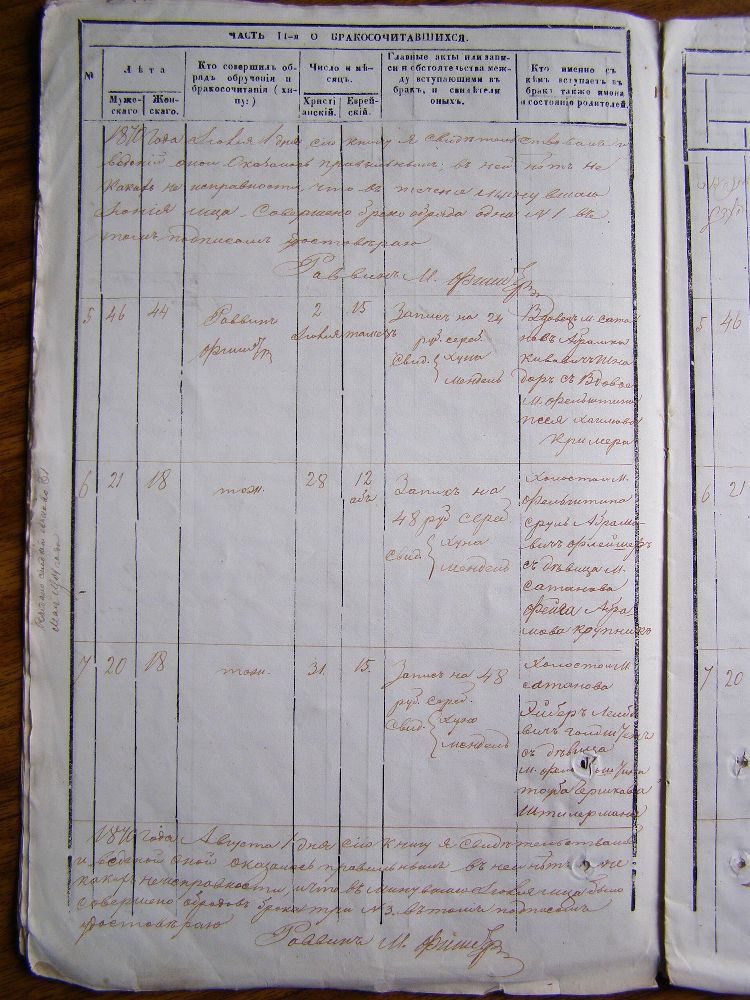 ЧАСТЬ II-я О БРАКОСОЧИТАВШИХСЯ.
№
Лѣта
Муже-
скаго
Жен-
скаго.
Кто совершилъ об-
рядъ обрученія и
бракосочитанія (хи-
пу:)
Число и мѣ-
сяцъ.
Христі
анскій.
Еврей-
скій.
Главные акты или запи-
си и обстоятельства меж-
ду вступающими въ
бракъ, и свидѣтели
оныхъ.
Кто именно съ
кѣмъ вступаетъ въ
бракъ также имена
и состояніе родителей.
1870 года Іюля 1 дня сію книгу я свидѣтельствовалъ и
оной оказалась правильнымъ; въ ней нѣтъ ни
какихъ не исправности, что въ теченіе минувшаго
Іюнія мца. Совершено брако обряда одна №1 въ
томъ подписомъ удостовѣраю
Раввинъ М. Фишеръ
5 46 44
Раввинъ
Фишеръ
2 15
Іюлія тамузъ
Запись на 24
руб. сереб.
свид. Хуна
Мендель
Вдовецъ м. Сата-
новъ Абрамко
Шна
доръ съ Вдовою
м. Фельштина
Песя Хаимова
Кримера
6 21 18
тож.
28 12
абъ
Запись на
48 руб. сереб.
свид. Хуна
Мендель
Холостой м.
Фельштина
Сруль Абрамо-
вичъ Флейшеръ
съ дѣвица м.
Сатанова
Фейга Абра-
мова Крупникъ
7 20 18
тож.
31. 15.
Запись на 48
руб. сереб.
свид. Хуна
Мендель
Холостой м
Сатанова
Лейбо
вичъ
съ дѣвица
м.
Гершкова
Штилермана
1870 года Августа 1 дня сію книгу я свидѣтельствовалъ
и оной оказалась правильнымъ въ ней нѣтъ ни
какихъ неисправности, и что въ минувшемъ Іюля мца было
совершено обрядовъ брака три №3. въ томъ подписомъ
удостовѣраю
Раввинъ М Фишеръ
5 46
6 21
7 20